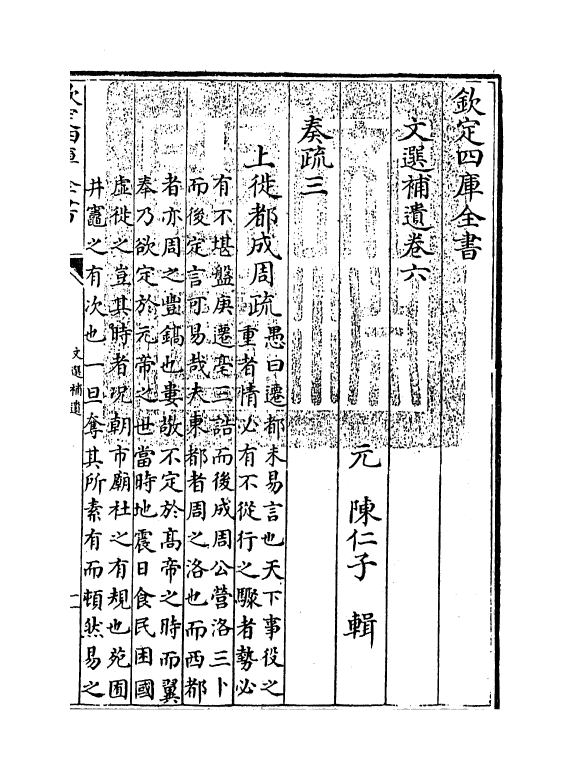 欽定四庫全書
文選補遺卷六
元　陳仁子　輯
奏疏三
上徙都成周疏
愚曰遷都未易言也天下事役之
重者情必有不從行之驟者勢必
有不堪盤庚遷亳三誥而後成周公營洛三卜
而後定言可易哉夫東都者周之洛也而西都
者亦周之豐鎬也婁敬不定於髙帝之時而翼
奉乃欲定於元帝之世當時地震日食民困國
虚徙之豈其時者况朝市廟社之有規也苑囿
井竈之有次也一旦奪其所素有而頓然易之
文選補遺